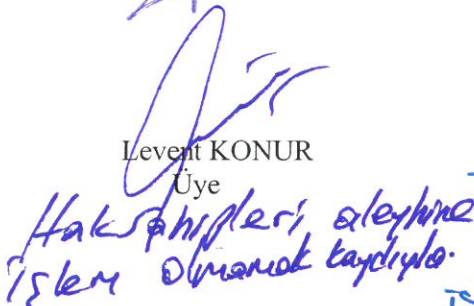 Levent KONUR
Üye
Haksahipleri aleyhine
işlem olmamak kaydıyla.